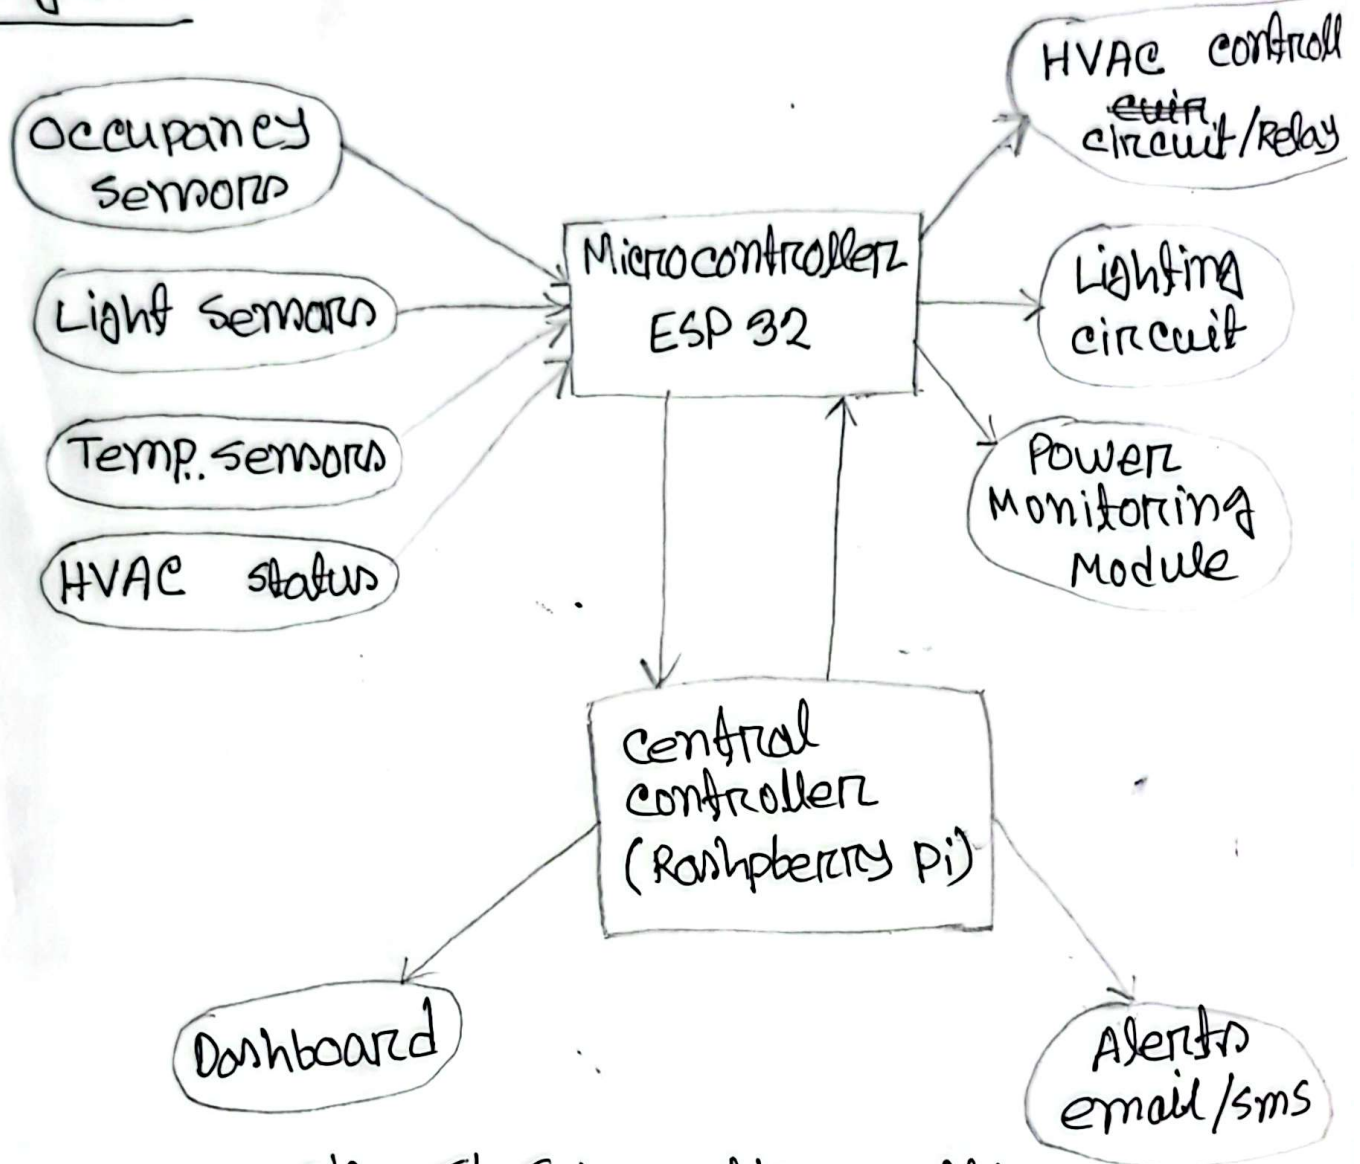 Occupancy
sensors
Light sensors
Temp. sensors
HVAC status
Microcontroller
ESP 32
HVAC controll
circuit/Relay
Lighting
circuit
Power
Monitoring
Module
central
controller
(Rashpberry pi)
Dashboard
Alerts
email/sms